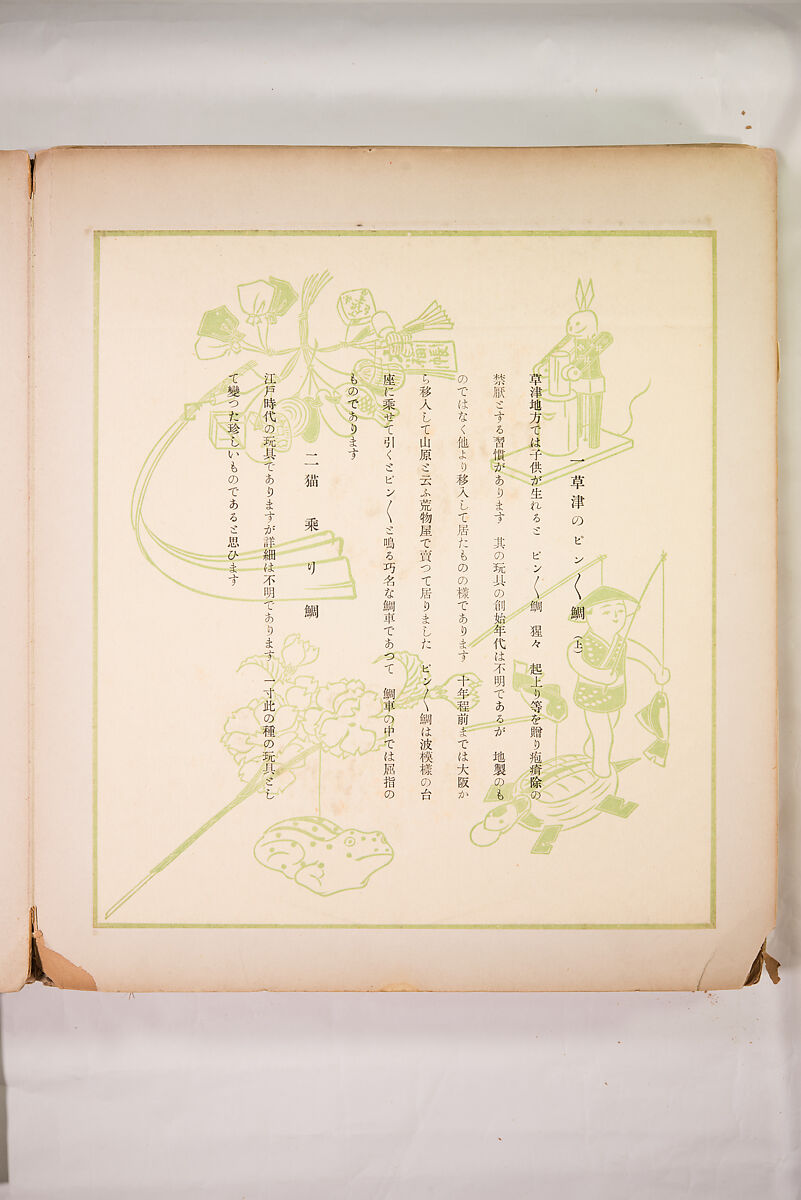 一草津のピン〳〵鯛(上)
草津地方では子供が生れると ピン〳〵鯛 猩々 起上り等を贈り疱瘡除の
禁厭とする習慣があります 其の玩具の創始年代は不明であるが 地製のも
のではなく他より移入して居たものの樣であります 十年程前までは大阪か
ら移入して山原と云ふ荒物屋で賣つて居りました ピン〳〵鯛は波模樣の台
座に乘せて引くとピン〳〵と鳴る巧名な鯛車であつて 鯛車の中では屈指の
ものであります
二猫乘り鯛
江戸時代の玩具でありますが詳細は不明であります 一寸此の種の玩具とし
て變つた珍しいものであると思ひます